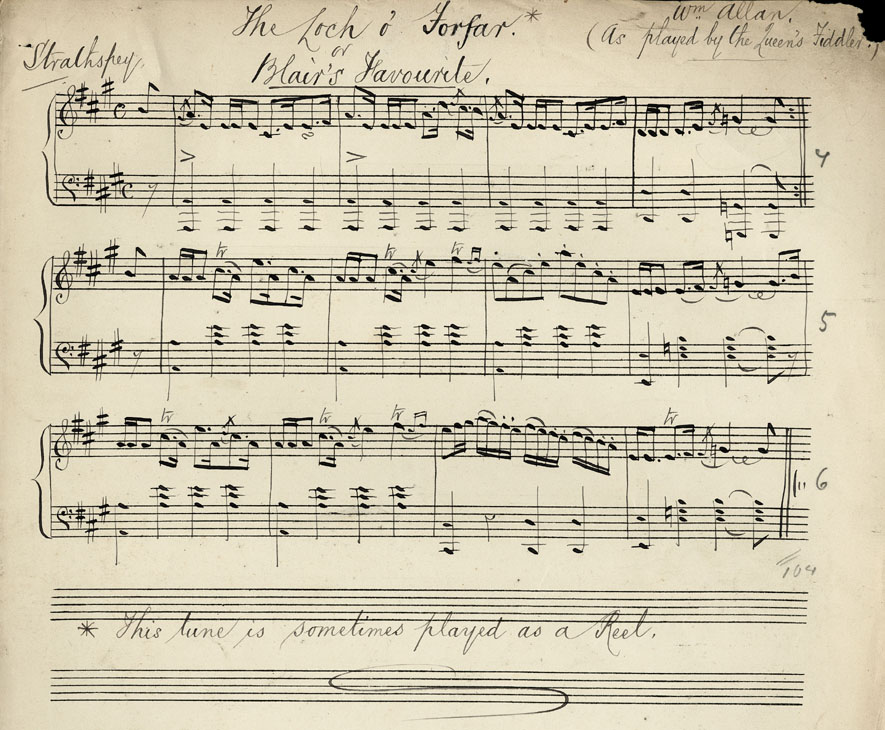 The Loch o' Forfar.*
or
Blair's Favourite.
Strathspey.
Wm Allan.
(As played by the Queen's Fiddler.)
4
tr tr tr
5
tr tr tr tr
6
104
* This tune is sometimes played as a Reel.